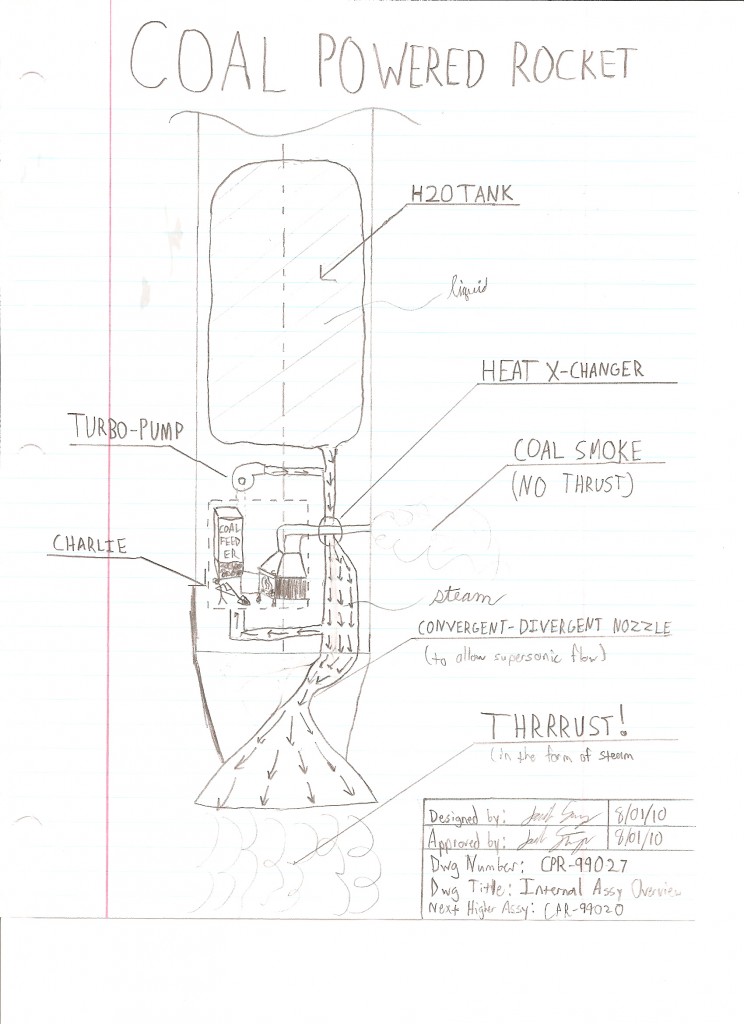 COAL POWERED ROCKET
H2O TANK
liquid
HEAT X-CHANGER
TURBO-PUMP
COAL SMOKE
(NO THRUST)
COAL
FEED
ER
CHARLIE
steam
CONVERGENT-DIVERGENT NOZZLE
(to allow supersonic flow)
THRRRUST!
(in the form of steam
Designed by: 8/01/10
Approved by: 8/01/10
Dwg Number: CPR-99027
Dwg Title: Internal Assy Overview
Next Higher Assy: CAR-99020